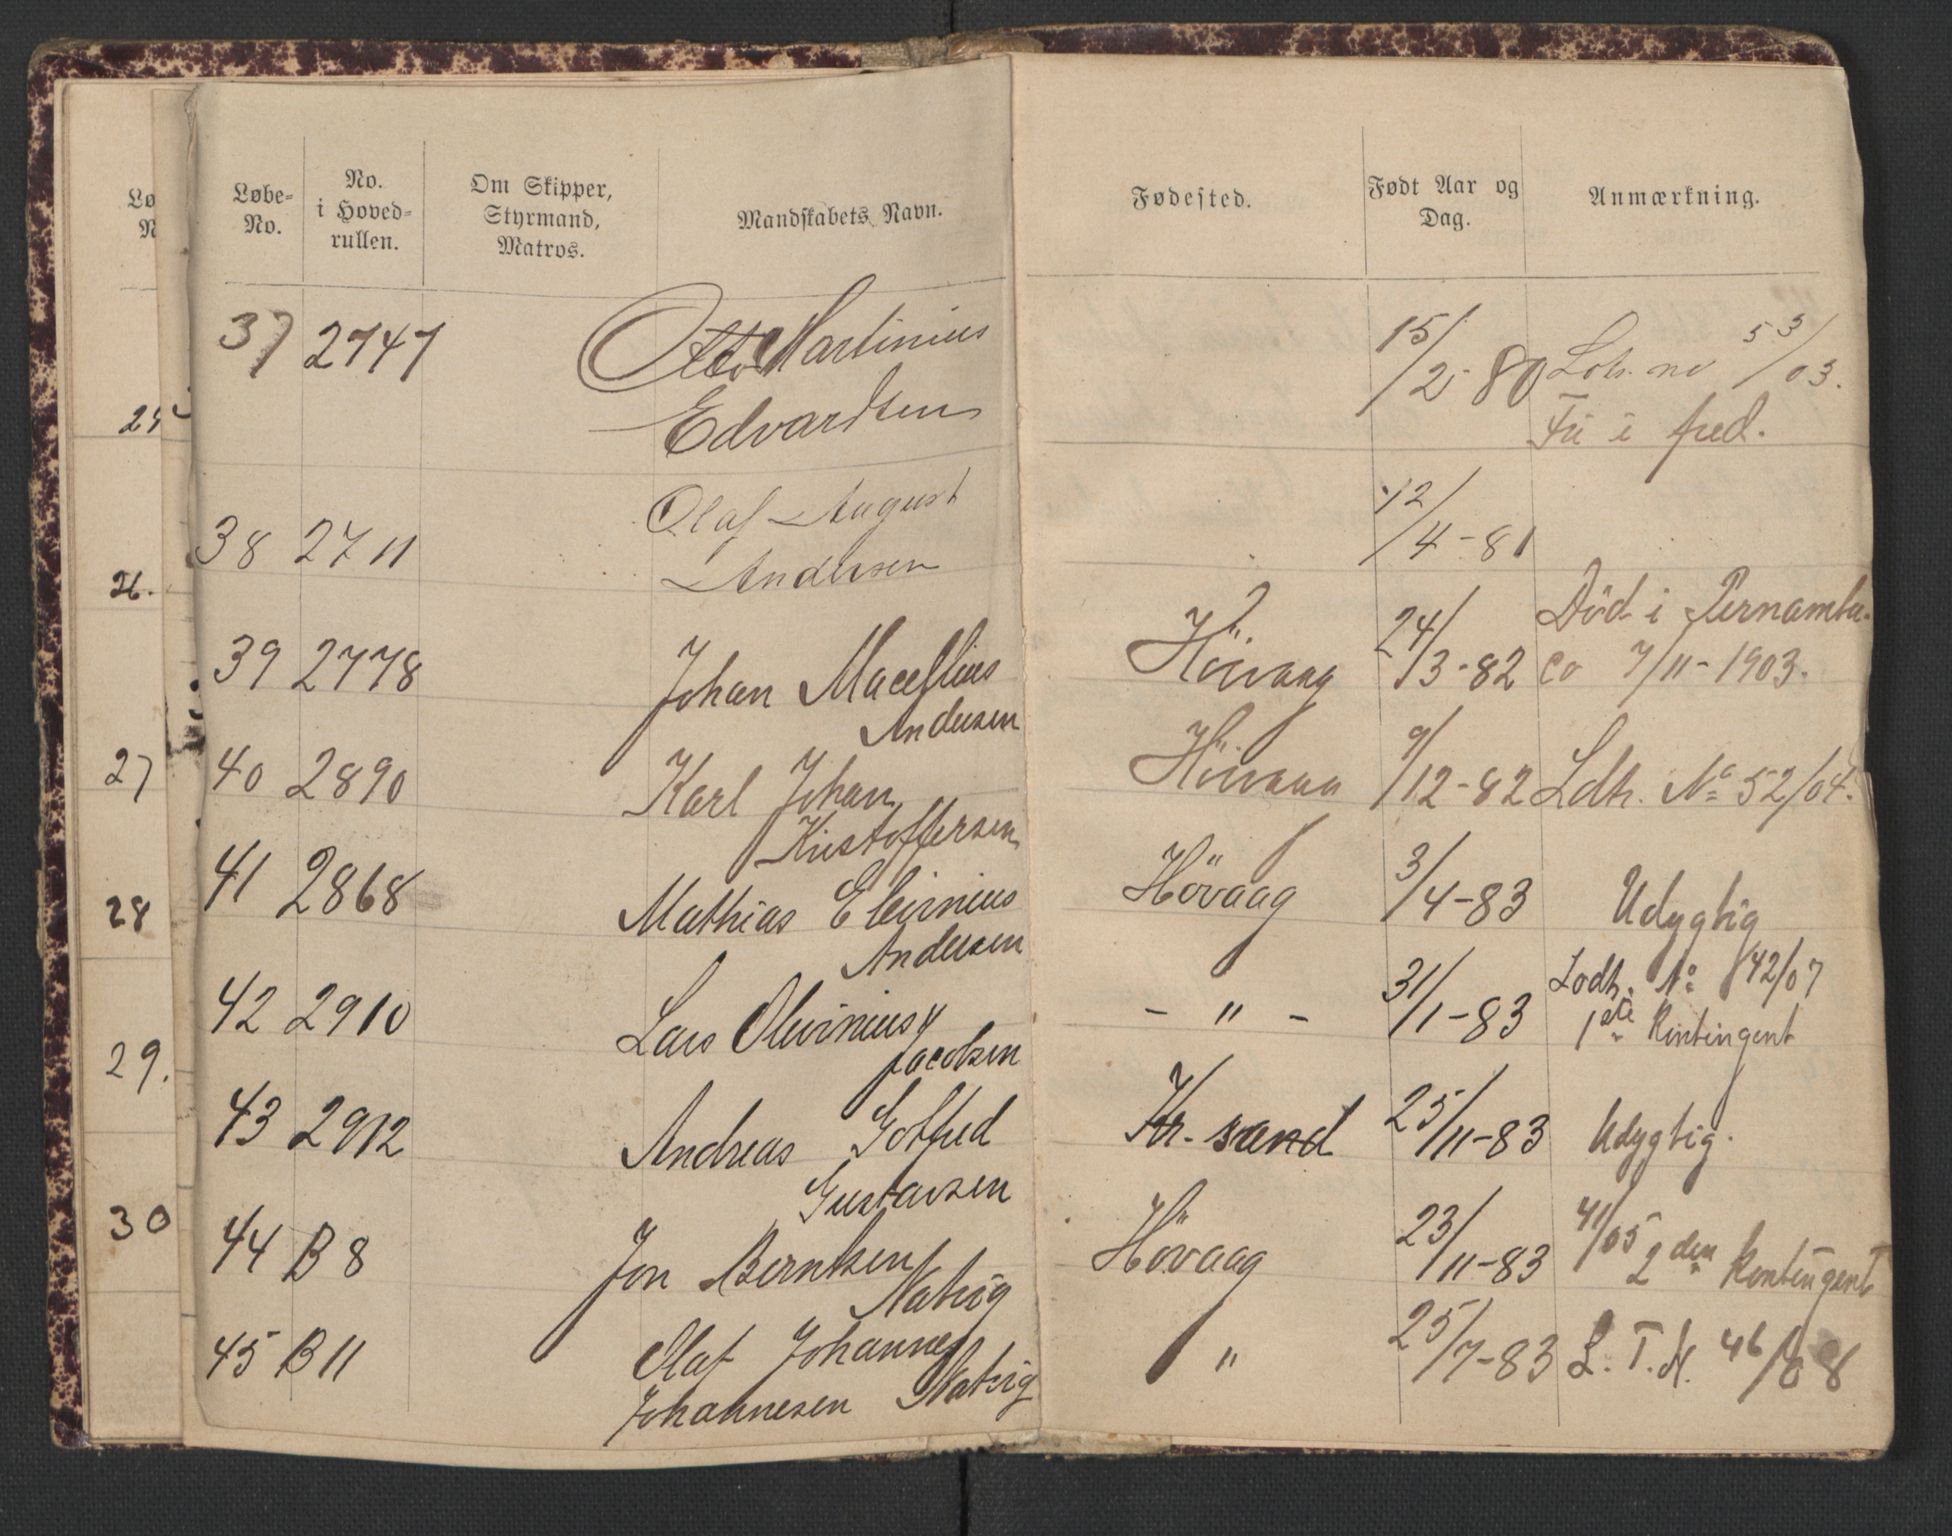 Lø
N
25
26.
27
28
29.
30
Løbe-No. No. i Hoved-rullen. Om Skipper, Styrmand, Matros. Mandskabets Navn. Fødested. Født Aar og Dag. Anmærkning.
37 2747 Otto Martinius 15/2-80 Loh. no 53/03.
Edvardsen Fri i fred.
38 2711 Olaf August 12/4-81
Andersen
39 2778 Johan Macellius Høivaag 24/3-82 Død i Pernambu-
Andersen co 7/11-1903.
40 2890 Karl Johan Høivaag 9/12-82 Ldh. No 52/04.
Kristoffersen
41 2868 Mathias Elevinius Høvaag 3/4-83 Udygtig
Andersen
42 2910 Lars Olevinius - " - 31/1-83 Lodh. No 42/07
Jacobsen 1ste Kontingent
43 2912 Andreas Gotfred Kr. sand 25/11-83 Udygtig.
Gustavsen
44 B 8 Jon Berntsen Høvaag 23/11-83 41/05 2den Kontingent
Natvig
45 B 11 Olaf Johannes " 25/7-83 L. T. N. 46/08
Johannesen Natvig